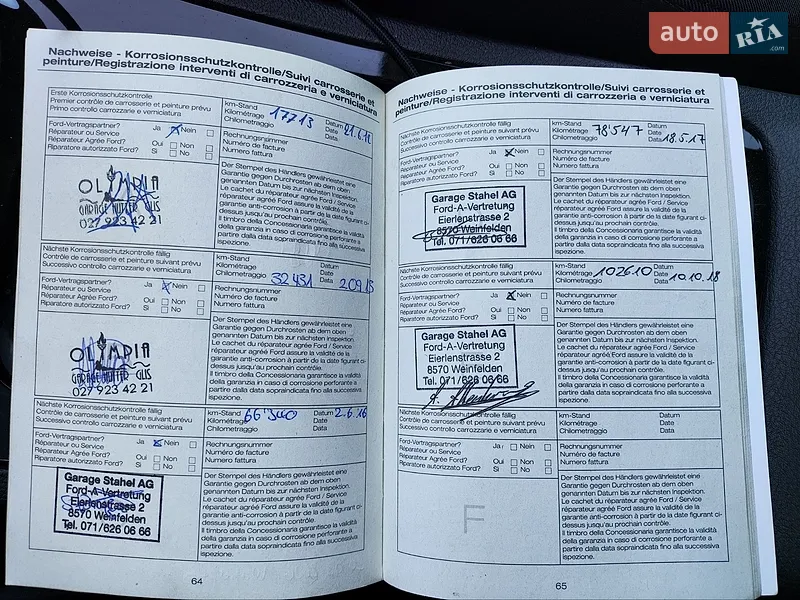 auto RIA .com
Nachweise - Korrosionsschutzkontrolle/Suivi carrosserie et
peinture/Registrazione interventi di carrozzeria e verniciatura
Erste Korrosionsschutzkontrolle
Premier contrôle de carrosserie et peinture prévu
Primo controllo carrozzeria e verniciatura
km-Stand
Kilométrage
Chilometraggio
17713
Datum
Date
Data
21.6.12
Ford-Vertragspartner?
Réparateur ou Service
Réparateur Agrée Ford?
Riparatore autorizzato Ford?
Ja Nein
Oui Non
Si No
Rechnungsnummer
Numéro de facture
Numero fattura
OLYMPIA
GARAGE
027 923 42 21
Der Stempel des Händlers gewährleistet eine
Garantie gegen Durchrosten ab dem oben
genannten Datum bis zur nächsten Inspektion.
Le cachet du réparateur agréé Ford / Service
réparateur agréé Ford assure la validité de la
garantie anti-corrosion à partir de la date figurant ci-
dessus jusqu'au prochain contrôle.
Il timbro della Concessionaria garantisce la validità
della garanzia in caso di corrosione perforante a
partire dalla data sopraindicata fino alla successiva
ispezione.
Nächste Korrosionsschutzkontrolle fällig
Contrôle de carrosserie et peinture suivant prévu
Successivo controllo carrozzeria e verniciatura
km-Stand
Kilométrage
Chilometraggio
32431
Datum
Date
Data
Ford-Vertragspartner?
Réparateur ou Service
Réparateur Agrée Ford?
Riparatore autorizzato Ford?
Ja Nein
Oui Non
Si No
Rechnungsnummer
Numéro de facture
Numero fattura
OLYMPIA
GARAGE
027 923 42 21
Der Stempel des Händlers gewährleistet eine
Garantie gegen Durchrosten ab dem oben
genannten Datum bis zur nächsten Inspektion.
Le cachet du réparateur agréé Ford / Service
réparateur agréé Ford assure la validité de la
garantie anti-corrosion à partir de la date figurant ci-
dessus jusqu'au prochain contrôle.
Il timbro della Concessionaria garantisce la validità
della garanzia in caso di corrosione perforante a
partire dalla data sopraindicata fino alla successiva
ispezione.
Nächste Korrosionsschutzkontrolle fällig
Contrôle de carrosserie et peinture suivant prévu
Successivo controllo carrozzeria e verniciatura
km-Stand
Kilométrage
Chilometraggio
Datum
Date
Data
2.6.16
Ford-Vertragspartner?
Réparateur ou Service
Réparateur Agrée Ford?
Riparatore autorizzato Ford?
Ja Nein
Oui Non
Si No
Rechnungsnummer
Numéro de facture
Numero fattura
Garage Stahel AG
Ford-A-Vertretung
Eierlenstrasse 2
8570 Weinfelden
Tel. 071/626 06 66
Der Stempel des Händlers gewährleistet eine
Garantie gegen Durchrosten ab dem oben
genannten Datum bis zur nächsten Inspektion.
Le cachet du réparateur agréé Ford / Service
réparateur agréé Ford assure la validité de la
garantie anti-corrosion à partir de la date figurant ci-
dessus jusqu'au prochain contrôle.
Il timbro della Concessionaria garantisce la validità
della garanzia in caso di corrosione perforante a
partire dalla data sopraindicata fino alla successiva
ispezione.
64
Nachweise - Korrosionsschutzkontrolle/Suivi carrosserie et
peinture/Registrazione interventi di carrozzeria e verniciatura
Nächste Korrosionsschutzkontrolle fällig
Contrôle de carrosserie et peinture suivant prévu
Successivo controllo carrozzeria e verniciatura
km-Stand
Kilométrage
Chilometraggio
78'547
Datum
Date
Data
18.5.17
Ford-Vertragspartner?
Réparateur ou Service
Réparateur Agrée Ford?
Riparatore autorizzato Ford?
Ja Nein
Oui Non
Si No
Rechnungsnummer
Numéro de facture
Numero fattura
Garage Stahel AG
Ford-A-Vertretung
Eierlenstrasse 2
8570 Weinfelden
Tel. 071/626 06 66
Der Stempel des Händlers gewährleistet eine
Garantie gegen Durchrosten ab dem oben
genannten Datum bis zur nächsten Inspektion.
Le cachet du réparateur agréé Ford / Service
réparateur agréé Ford assure la validité de la
garantie anti-corrosion à partir de la date figurant ci-
dessus jusqu'au prochain contrôle.
Il timbro della Concessionaria garantisce la validità
della garanzia in caso di corrosione perforante a
partire dalla data sopraindicata fino alla successiva
ispezione.
Nächste Korrosionsschutzkontrolle fällig
Contrôle de carrosserie et peinture suivant prévu
Successivo controllo carrozzeria e verniciatura
km-Stand
Kilométrage
Chilometraggio
102610
Datum
Date
Data
10.10.18
Ford-Vertragspartner?
Réparateur ou Service
Réparateur Agrée Ford?
Riparatore autorizzato Ford?
Ja Nein
Oui Non
Si No
Rechnungsnummer
Numéro de facture
Numero fattura
Garage Stahel AG
Ford-A-Vertretung
Eierlenstrasse 2
8570 Weinfelden
Tel. 071/626 06 66
Der Stempel des Händlers gewährleistet eine
Garantie gegen Durchrosten ab dem oben
genannten Datum bis zur nächsten Inspektion.
Le cachet du réparateur agréé Ford / Service
réparateur agréé Ford assure la validité de la
garantie anti-corrosion à partir de la date figurant ci-
dessus jusqu'au prochain contrôle.
Il timbro della Concessionaria garantisce la validità
della garanzia in caso di corrosione perforante a
partire dalla data sopraindicata fino alla successiva
ispezione.
Nächste Korrosionsschutzkontrolle fällig
Contrôle de carrosserie et peinture suivant prévu
Successivo controllo carrozzeria e verniciatura
km-Stand
Kilométrage
Chilometraggio
Datum
Date
Data
Ford-Vertragspartner?
Réparateur ou Service
Réparateur Agrée Ford?
Riparatore autorizzato Ford?
Ja Nein
Oui Non
Si No
Rechnungsnummer
Numéro de facture
Numero fattura
F
Der Stempel des Händlers gewährleistet eine
Garantie gegen Durchrosten ab dem oben
genannten Datum bis zur nächsten Inspektion.
Le cachet du réparateur agréé Ford / Service
réparateur agréé Ford assure la validité de la
garantie anti-corrosion à partir de la date figurant ci-
dessus jusqu'au prochain contrôle.
Il timbro della Concessionaria garantisce la validità
della garanzia in caso di corrosione perforante a
partire dalla data sopraindicata fino alla successiva
ispezione.
65